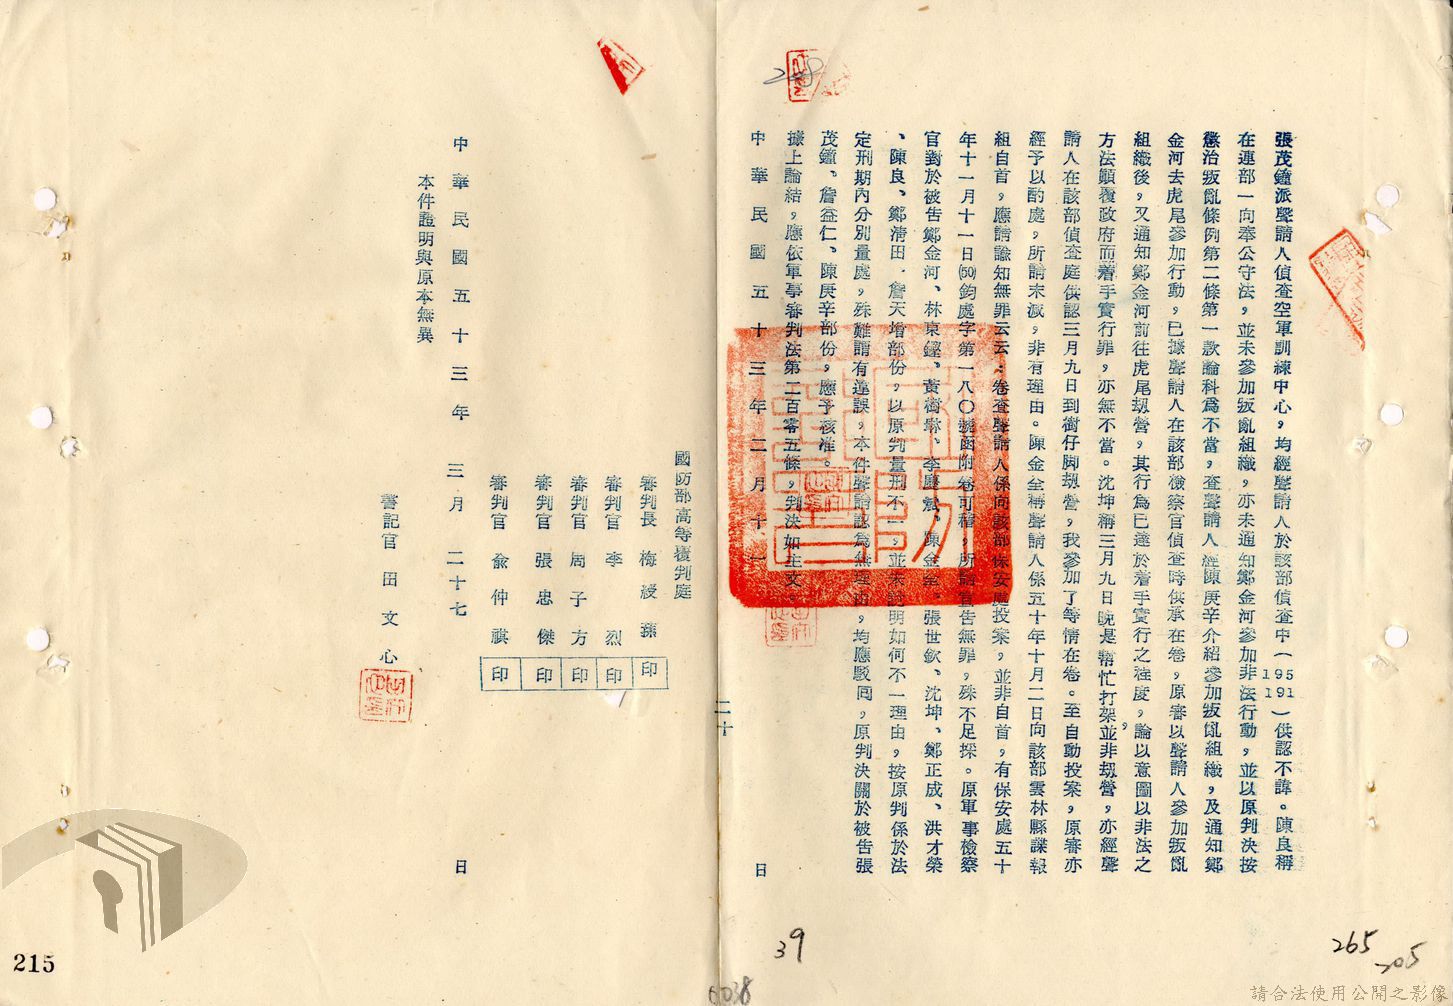 張茂鐘派聲請人偵查空軍訓練中心，均經聲請人於該部偵查中（195 191）供認不諱。陳良稱
在連部一向奉公守法，並未參加叛亂組織，亦未通知鄭金河參加非法行動，並以原判決按
懲治叛亂條例第二條第一款論科為不當，查聲請人經陳庚辛介紹參加叛亂組織，及通知鄭
金河去虎尾參加行動，已據聲請人在該部檢察官偵查時供承在卷，原審以聲請人參加叛亂
組織後，又通知鄭金河前往虎尾刼營，其行為已達於着手實行之程度，論以意圖以非法之
方法顛覆政府而着手實行罪，亦無不當。沈坤稱三月九日晚是幫忙打架並非刼營，亦經聲
請人在該部偵查庭供認三月九日到樹仔脚刼營，我參加了等情在卷。至自動投案，原審亦
經予以酌處，所請末減，非有理由。陳金全稱聲請人係五十年十月二日向該部雲林縣諜報
組自首，應請諭知無罪云云，卷查聲請人係向該部保安處投案，並非自首，有保安處五十
年十一月十一日(50)鈞處字第一八〇號函附卷可稽，所請宣告無罪，殊不足採。原軍事檢察
官對於被告鄭金河、林東鏗、黃樹琳、李慶斌、陳金全、張世欽、沈坤、鄭正成、洪才榮
、陳良、鄭清田、詹天增部份，以原判量刑不一，並未說明如何不一理由，按原判係於法
定刑期內分別量處，殊難謂有違誤，本件聲請認為無理由，均應駁回，原判決關於被告張
茂鐘、詹益仁、陳庚辛部份，應予核准。
據上論結，應依軍事審判法第二百零五條，判決如主文。
中華民國五十三年二月十二日
二十
國防部高等覆判庭
審判長 梅綬蓀 印
審判官 李烈 印
審判官 周子方 印
審判官 張忠傑 印
審判官 俞仲祺 印
中華民國五十三年三月二十七日
本件證明與原本無異
書記官 田文心
208
39
265
205
215
請合法使用公開之影像